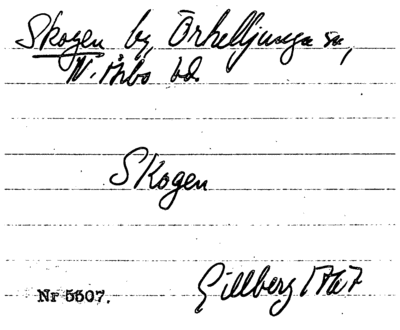 Skogen by, Örkelljunga sn,
N. Åsbo hd.
Skogen
Gillberg 1767
Nr 5507.